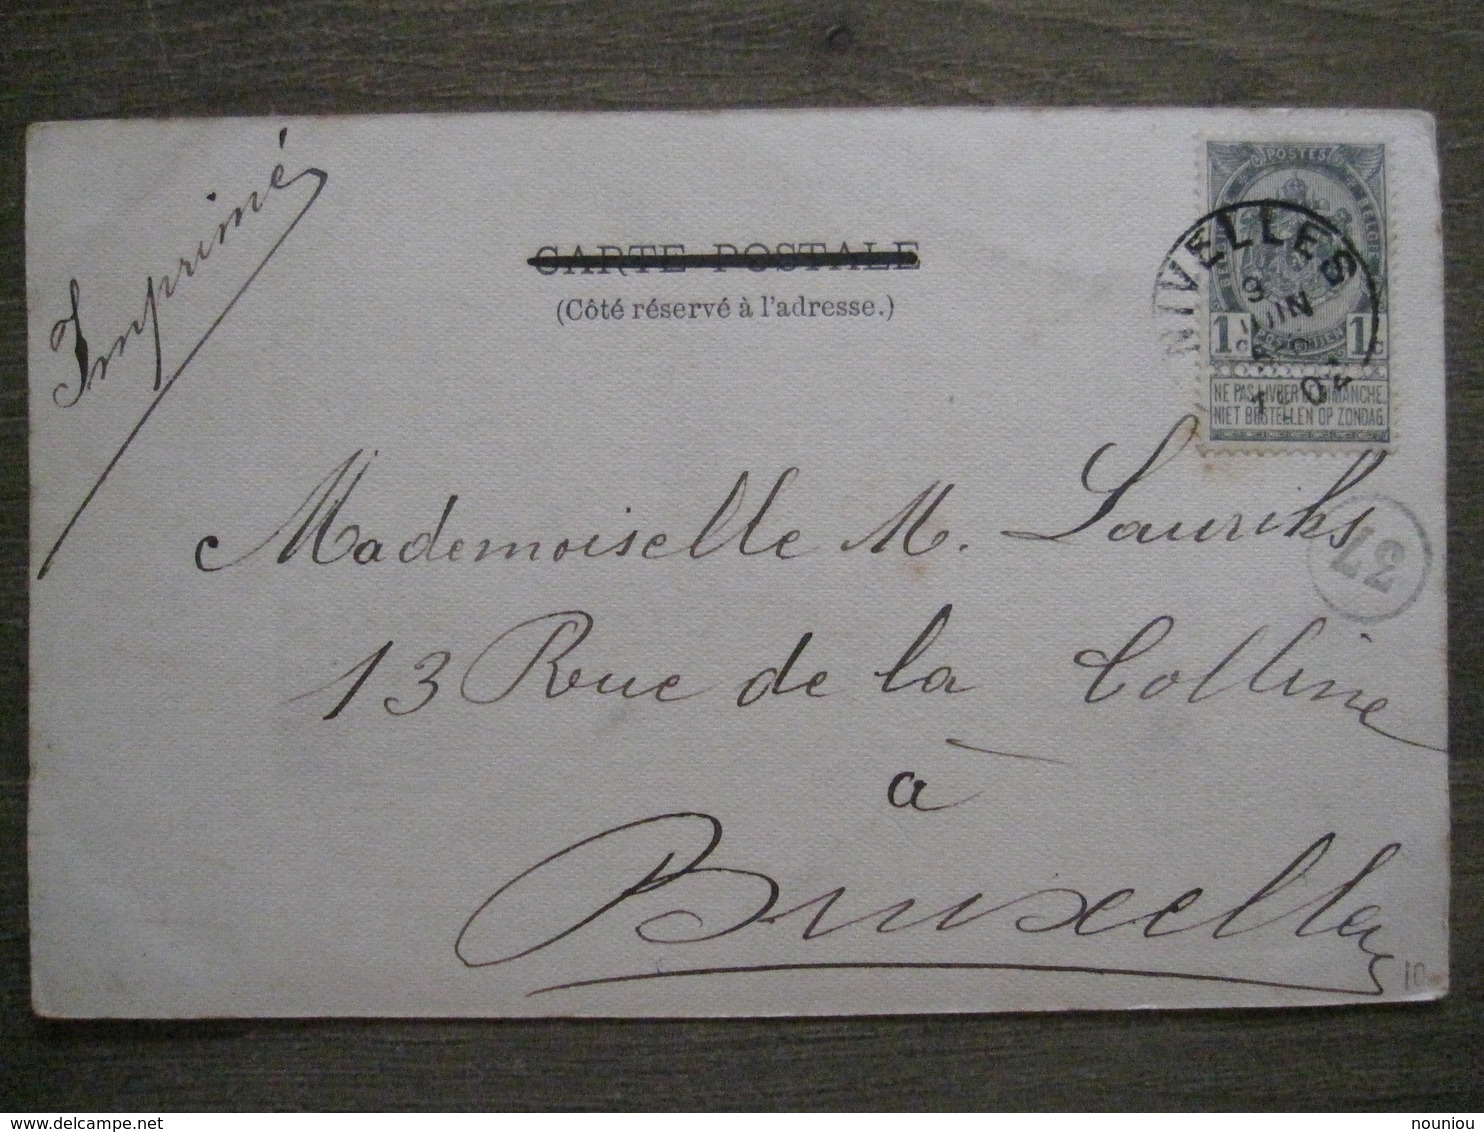 Imprimé
CARTE POSTALE
(Côté réservé à l'adresse.)
POSTES
BELGIË
1c 1c
NE PAS LIVRER LE DIMANCHE.
NIET BESTELLEN OP ZONDAG.
NIVELLES
9
JUIN
02
37
Mademoiselle M. Lauriks
13 Rue de la Colline
à
Bruxelles
10
delcampe.net
nouniou